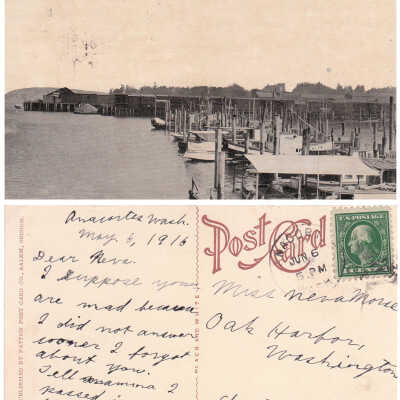 Anacortes Wash.
May 6, 1916
Dear Neva.
I suppose you
are mad because
I did not answer
sooner I forgot
about you.
Tell mamma I
passed
PUBLISHED BY PATTON POST CARD CO., SALEM, OREGON.
BLACK AND WHITE
Post Card
5 PM
U.S. POSTAGE
1 CENT 1
Miss Neva Morse
Oak Harbor,
Washington